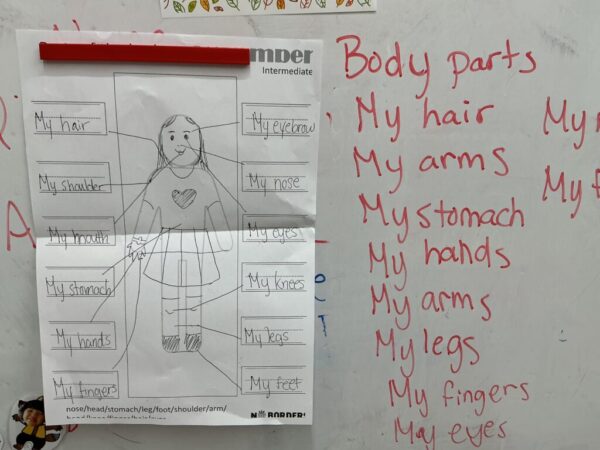 mber
Intermediate
My hair
My eyebrow
My shoulder
My nose
My mouth
My eyes
My stomach
My knees
My hands
My legs
My fingers
My feet
nose/head/stomach/leg/foot/shoulder/arm/
NO BORDER
Body parts
My hair
My arms
My stomach
My hands
My arms
My legs
My fingers
My eyes
My
My